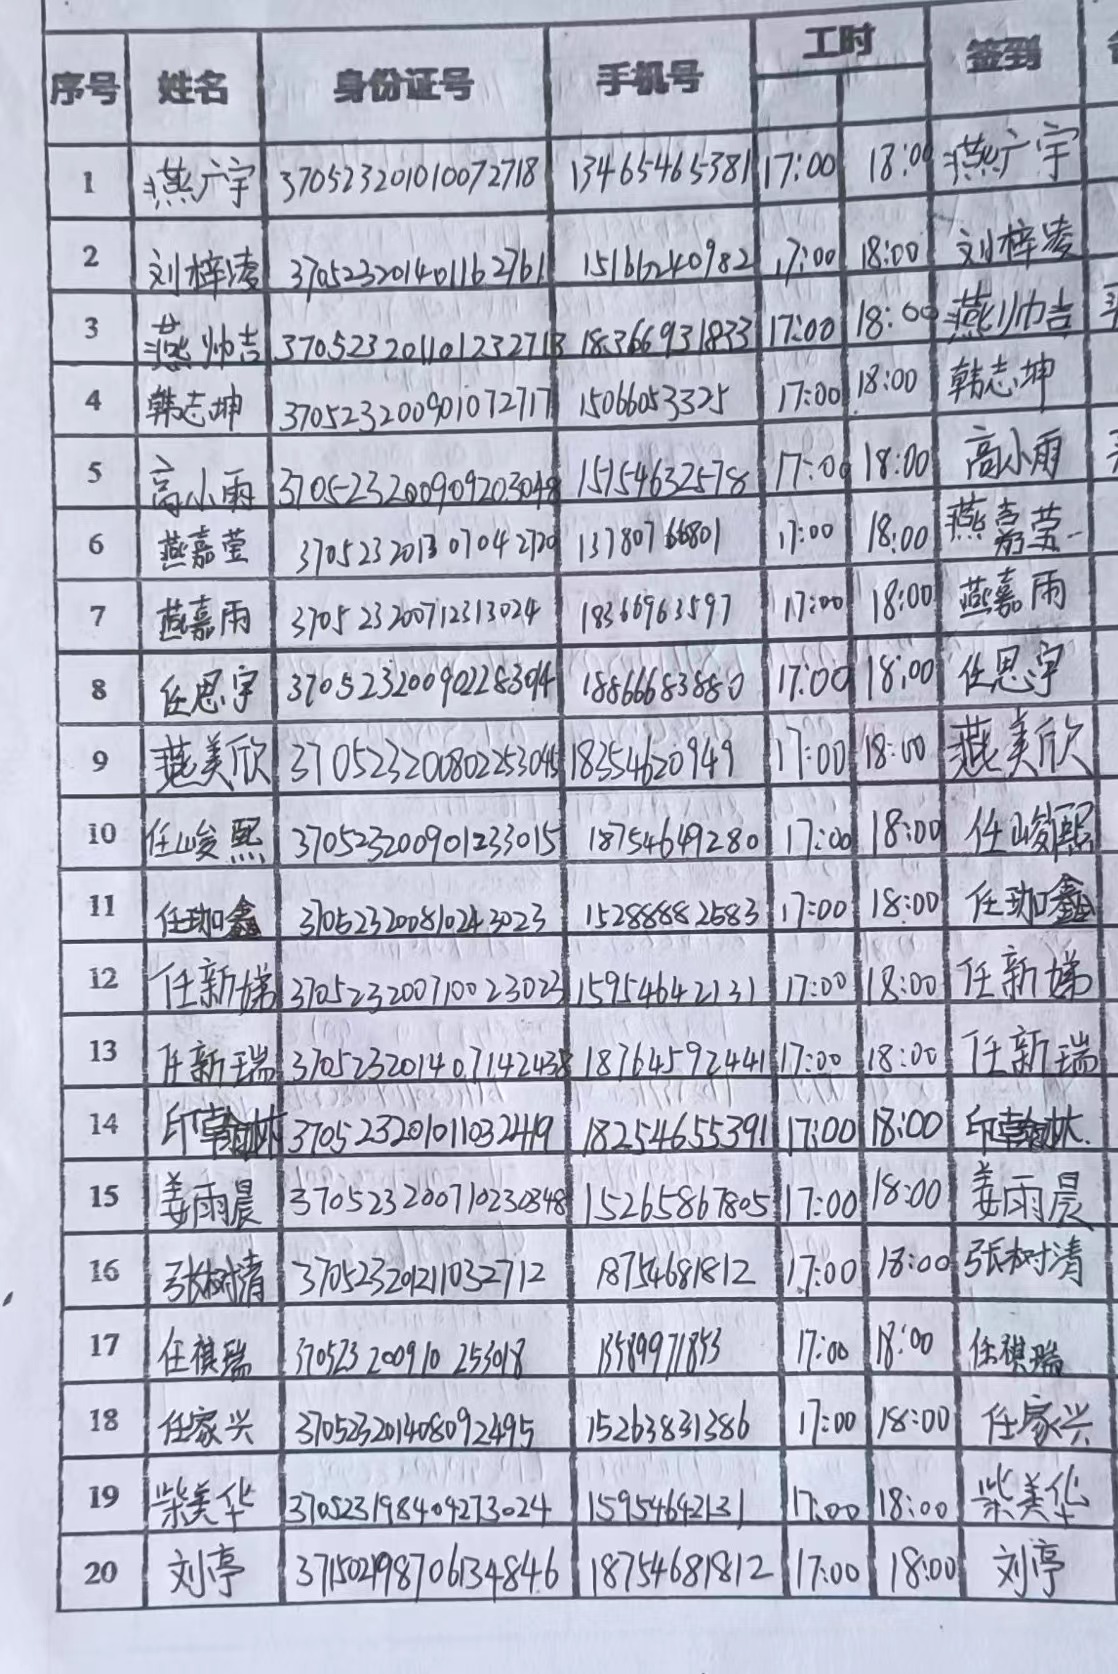 序号 姓名 身份证号 手机号 工时 签到
1 燕广宇 370523201010072718 13465465381 17:00 18:00 燕广宇
2 刘梓凌 370523201401162761 15166240982 17:00 18:00 刘梓凌
3 燕帅吉 370523201101232718 18366931833 17:00 18:00 燕帅吉
4 韩志坤 370523200901072717 15066053325 17:00 18:00 韩志坤
5 高小雨 370523200909203048 15754632578 17:00 18:00 高小雨
6 燕嘉莹 370523201307042720 13780766801 17:00 18:00 燕嘉莹
7 燕嘉雨 370523200712313024 18366963597 17:00 18:00 燕嘉雨
8 任思宇 370523200902283014 18866683880 17:00 18:00 任思宇
9 燕美欣 370523200802253045 18354620949 17:00 18:00 燕美欣
10 任峻熙 370523200901233015 18754649280 17:00 18:00 任峻熙
11 任珈鑫 370523200810243023 15288882583 17:00 18:00 任珈鑫
12 任新娣 370523200710023023 15954642131 17:00 18:00 任新娣
13 任新瑞 370523201407142438 18764592441 17:00 18:00 任新瑞
14 印翰林 370523201011032419 18254655391 17:00 18:00 印翰林
15 姜雨晨 370523200710230348 15265867805 17:00 18:00 姜雨晨
16 张树清 370523201211032712 18754681812 17:00 18:00 张树清
17 任祺瑞 370523200910253018 13589971853 17:00 18:00 任祺瑞
18 任家兴 370523201408092495 15263831386 17:00 18:00 任家兴
19 柴美华 370523198409273024 15954642131 17:00 18:00 柴美华
20 刘亭 371502198706134846 18754681812 17:00 18:00 刘亭